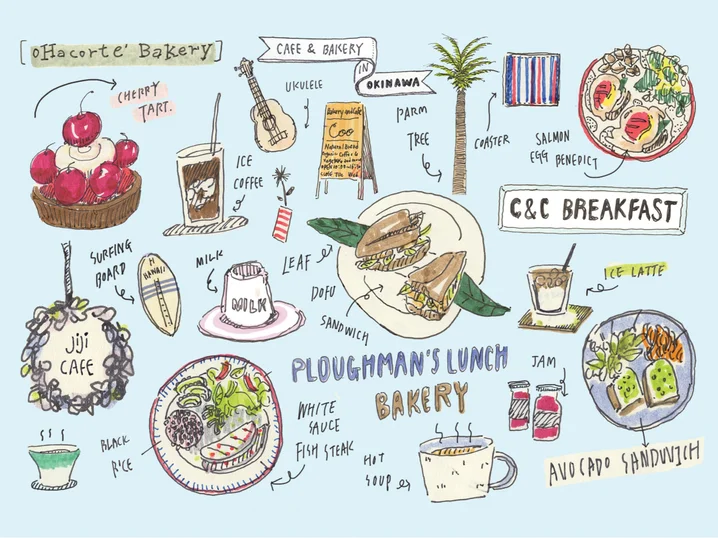 [oHacorte' Bakery]
CAFE & BAKERY
IN
OKINAWA
CHERRY
TART.
UKULELE
Bakery and Cafe
Coo
Natural Bread
ICE
COFFEE
PARM
TREE
COASTER
SALMON
EGG BENEDICT
C&C BREAKFAST
SURFING
BOARD
HAWAII
MILK
MILK
LEAF
DOFU
SANDWICH
ICE LATTE
JiJi
CAFE
PLOUGHMAN'S LUNCH
BAKERY
JAM
BLACK
RICE
WHITE
SAUCE
FISH STEAK
HOT
SOUP
AVOCADO SANDWICH